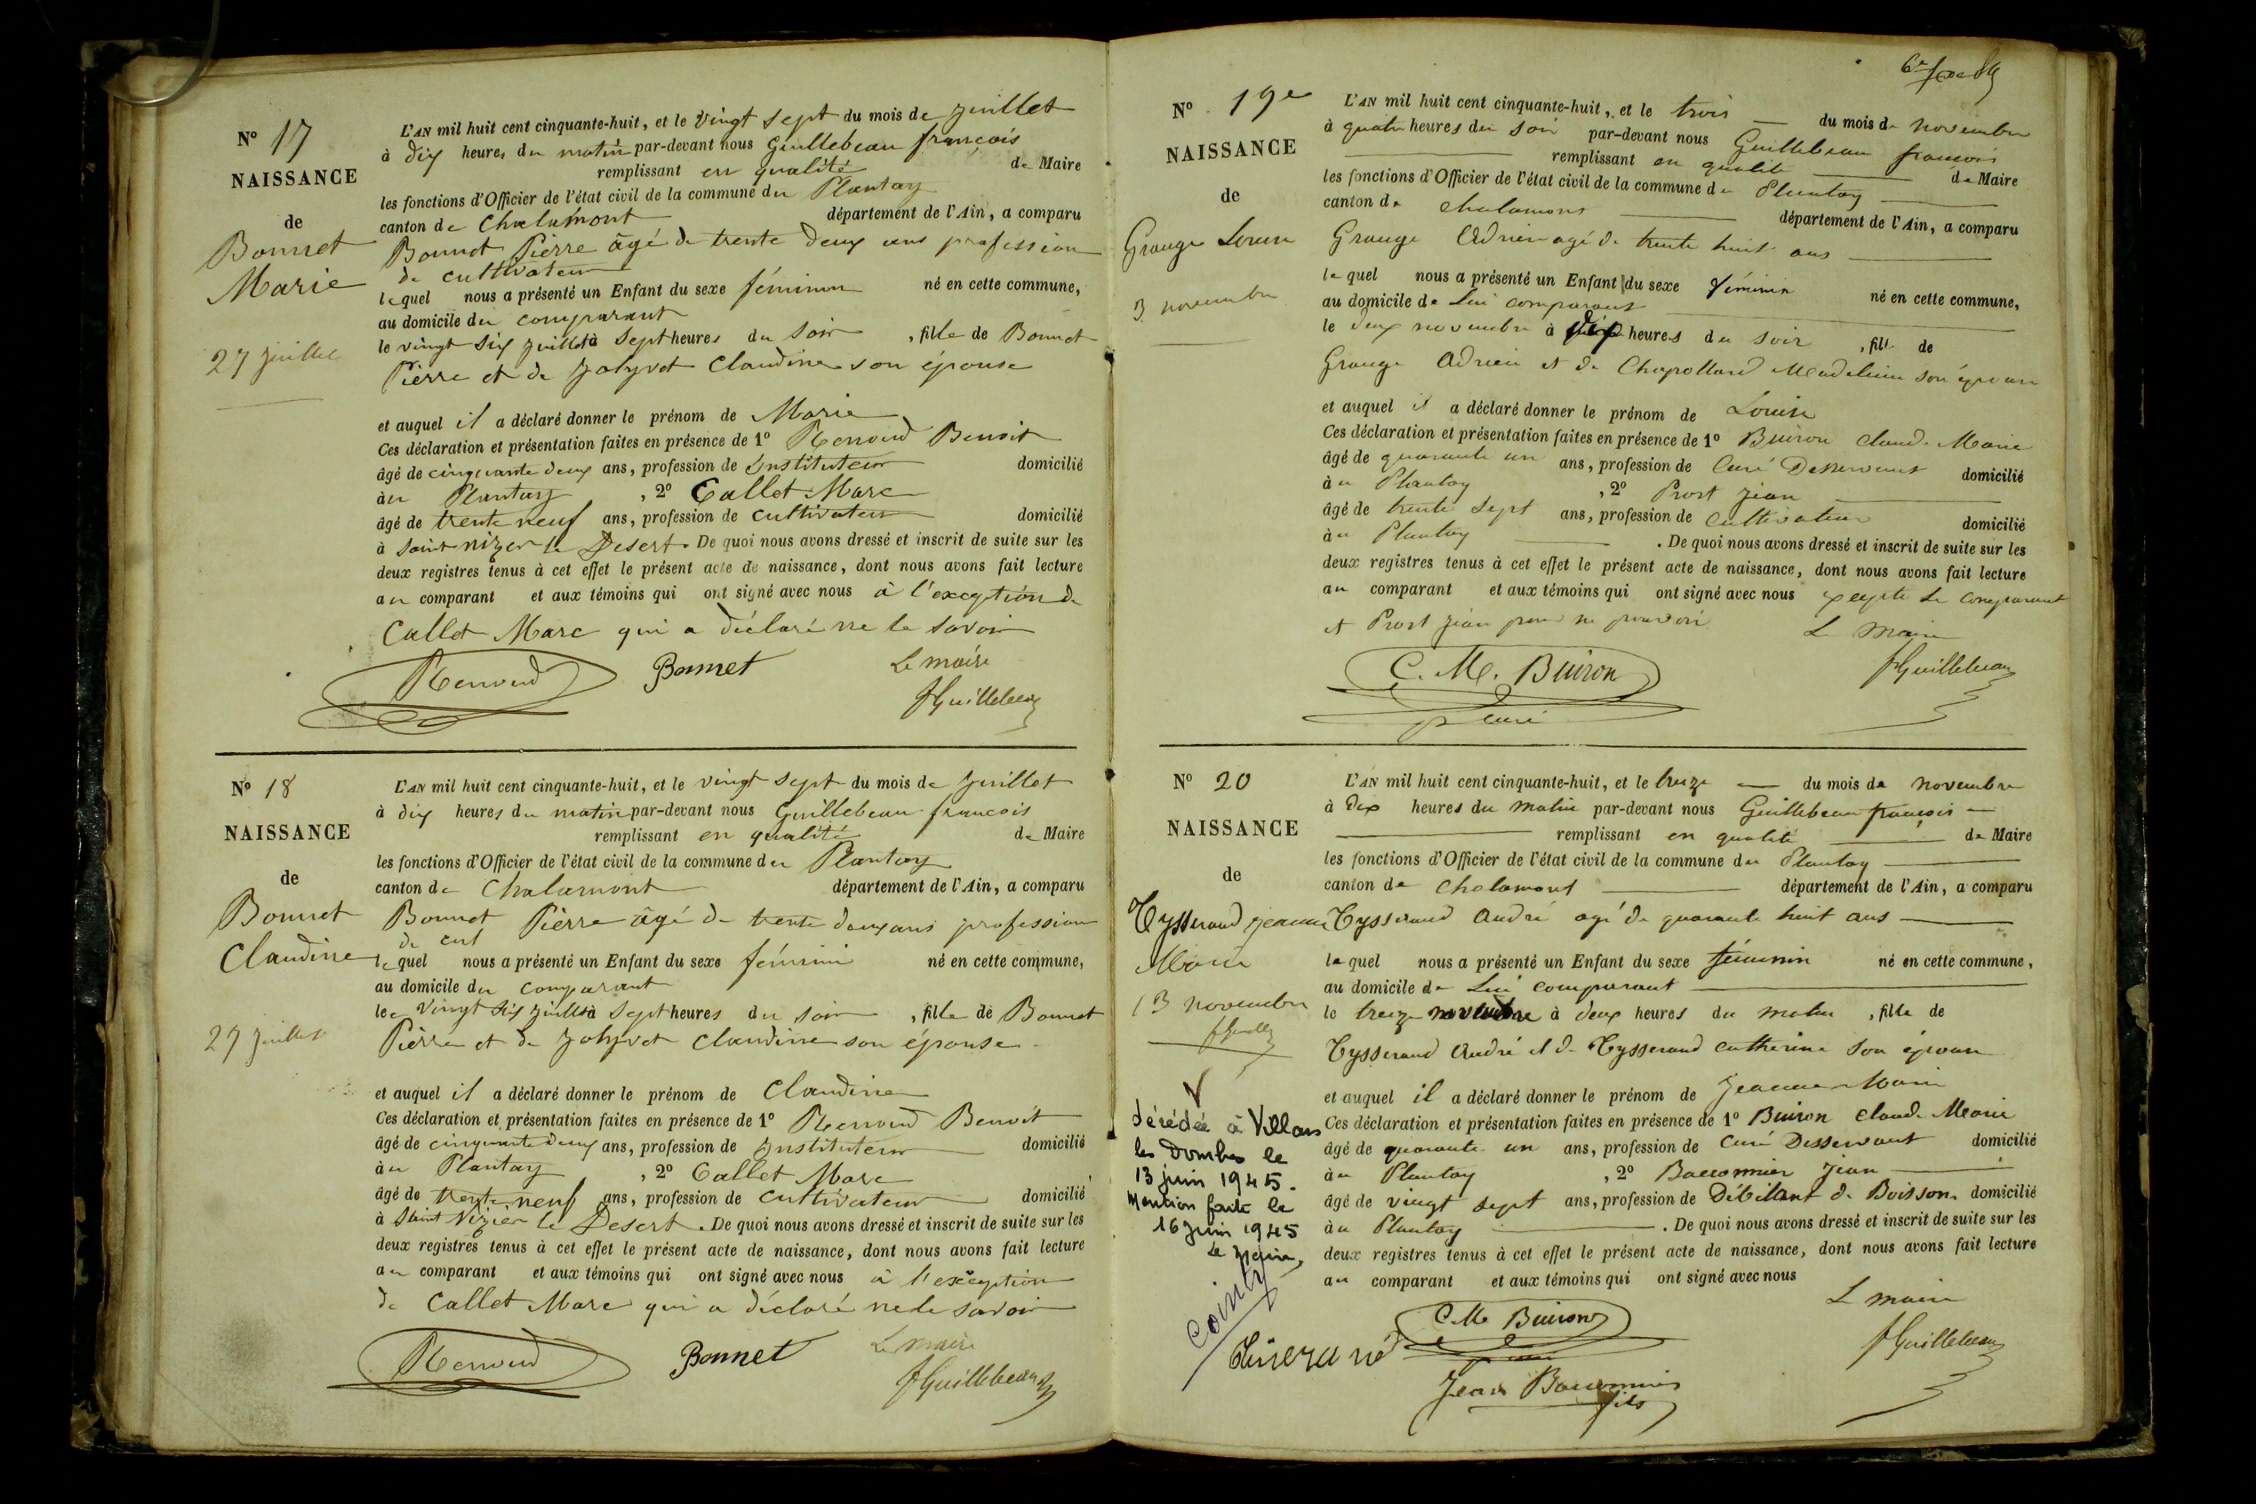 Nº 17
NAISSANCE
de
Bonnet
Marie
27 juillet
L'AN mil huit cent cinquante-huit, et le vingt sept du mois de juillet
à dix heures du matin par-devant nous Guillebeau françois
remplissant en qualité de Maire
les fonctions d'Officier de l'état civil de la commune du Plantay
canton de Chalamont département de l'Ain, a comparu
Bonnet Pierre âgé de trente deux ans profession
de cultivateur
lequel nous a présenté un Enfant du sexe féminin né en cette commune,
au domicile du comparant
le vingt six juillet à sept heures du soir, fille de Bonnet
Pierre et de Jolyvet Claudine son épouse
et auquel il a déclaré donner le prénom de Marie
Ces déclaration et présentation faites en présence de 1º Renoud Benoit
âgé de cinquante deux ans, profession de Instituteur domicilié
au Plantay, 2º Callet Marc
âgé de trente neuf ans, profession de cultivateur domicilié
à saint nizier le Desert. De quoi nous avons dressé et inscrit de suite sur les
deux registres tenus à cet effet le présent acte de naissance, dont nous avons fait lecture
au comparant et aux témoins qui ont signé avec nous à l'exception de
Callet Marc qui a déclaré ne le savoir
Renoud Bonnet Le maire
fGuillebeau
Nº 18
NAISSANCE
de
Bonnet
Claudine
27 juillet
L'AN mil huit cent cinquante-huit, et le vingt sept du mois de juillet
à dix heures du matin par-devant nous Guillebeau francois
remplissant en qualité de Maire
les fonctions d'Officier de l'état civil de la commune du Plantay
canton de Chalamont département de l'Ain, a comparu
Bonnet Pierre âgé de trente deux ans profession
de cul
lequel nous a présenté un Enfant du sexe féminin né en cette commune,
au domicile du comparant
le vingt six juillet à sept heures du soir, fille de Bonnet
Pierre et de Jolyvet Claudine son épouse
et auquel il a déclaré donner le prénom de Claudine
Ces déclaration et présentation faites en présence de 1º Renoud Benoit
âgé de cinquante deux ans, profession de Instituteur domicilié
au Plantay, 2º Callet Marc
âgé de trente neuf ans, profession de cultivateur domicilié
à Saint Nizier le Desert. De quoi nous avons dressé et inscrit de suite sur les
deux registres tenus à cet effet le présent acte de naissance, dont nous avons fait lecture
au comparant et aux témoins qui ont signé avec nous à l'exception
de Callet Marc qui a déclaré ne le savoir
Renoud Bonnet Le maire
fGuillebeau
Nº 19e
NAISSANCE
de
Grange Louise
3 novembre
L'AN mil huit cent cinquante-huit, et le trois du mois de novembre
à quatre heures du soir par-devant nous Guillebeau francois
remplissant en qualité de Maire
les fonctions d'Officier de l'état civil de la commune du Plantay
canton de chalamont département de l'Ain, a comparu
Grange Adrien agé de trente huit ans
lequel nous a présenté un Enfant du sexe féminin né en cette commune,
au domicile de lui comparant
le deux novembre à dix heures du soir, fille de
Grange Adrien et de Chapolland Madeleine son épouse
et auquel il a déclaré donner le prénom de Louise
Ces déclaration et présentation faites en présence de 1º Buiron Claude Marie
âgé de quarante un ans, profession de Curé Desservant domicilié
au Plantay, 2º Prost Jean
âgé de trente sept ans, profession de Cultivateur domicilié
au Plantay. De quoi nous avons dressé et inscrit de suite sur les
deux registres tenus à cet effet le présent acte de naissance, dont nous avons fait lecture
au comparant et aux témoins qui ont signé avec nous excepté le comparant
et Prost Jean pour ne pouvoir Le maire
C. M. Buiron fGuillebeau
curé
Nº 20
NAISSANCE
de
Tysserand Jeanne
Marie
13 novembre
décédée à Villars
les Dombes le
13 juin 1945.
Mention faite le
16 juin 1945
Le Maire,
L'AN mil huit cent cinquante-huit, et le treize du mois de novembre
à dix heures du matin par-devant nous Guillebeau françois
remplissant en qualité de Maire
les fonctions d'Officier de l'état civil de la commune du Plantay
canton de Chalamont département de l'Ain, a comparu
Tysserand André agé de quarante huit ans
lequel nous a présenté un Enfant du sexe féminin né en cette commune,
au domicile de Lui comparant
le treize novembre à deux heures du matin, fille de
Tysserand André et de Tysserand catherine Son épouse
et auquel il a déclaré donner le prénom de Jeanne Marie
Ces déclaration et présentation faites en présence de 1º Buiron Claude Marie
âgé de quarante un ans, profession de Curé Desservant domicilié
au Plantay, 2º Baconnier Jean
âgé de vingt sept ans, profession de Débitant de Boisson domicilié
au Plantay. De quoi nous avons dressé et inscrit de suite sur les
deux registres tenus à cet effet le présent acte de naissance, dont nous avons fait lecture
au comparant et aux témoins qui ont signé avec nous
Le maire
C. M. Buiron fGuillebeau
Jean Baconnier
fils